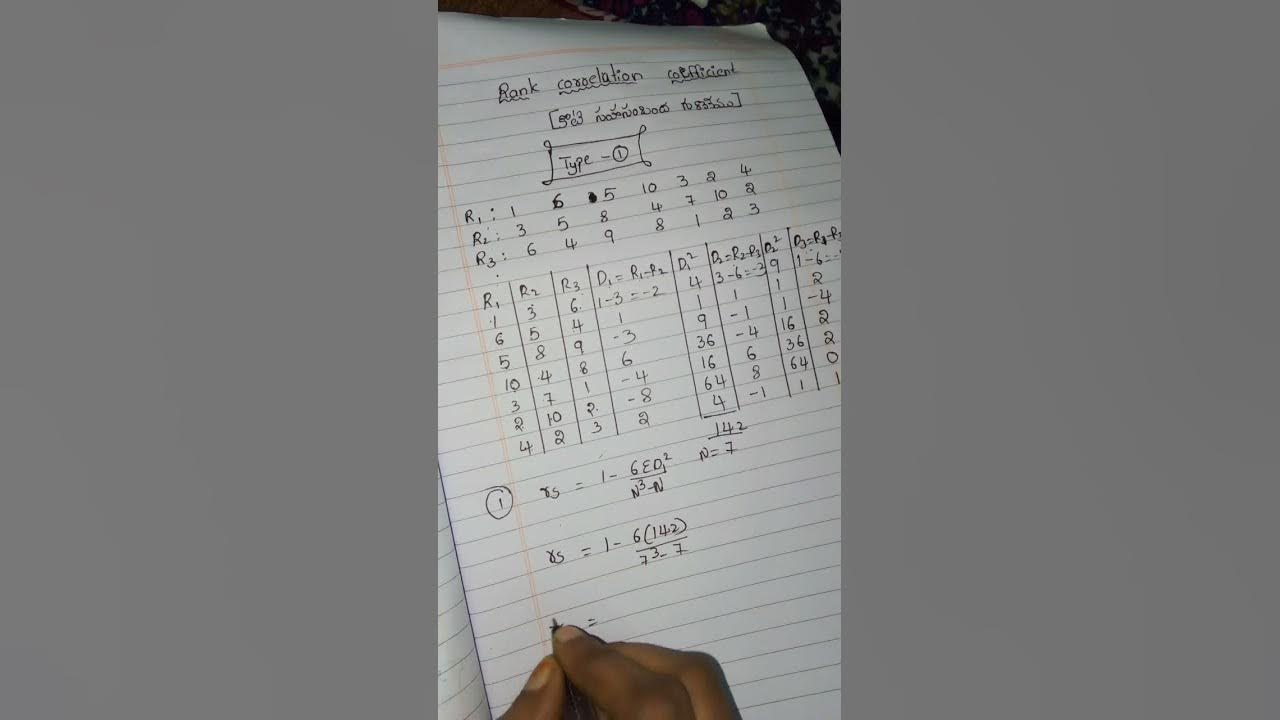 Rank correlation coefficient
[కోటి సహసంబంధ గుణకము]
Type - ①
R₁ : 1 6 5 10 3 2 4
R₂ : 3 5 8 4 7 10 2
R₃ : 6 4 9 8 1 2 3
R₁ R₂ R₃ D₁ = R₁-R₂ D₁² D₂=R₂-R₃ D₂²
1 3 6 1-3 = -2 4 3-6=-3 9 1-6=
6 5 4 1 1 1 1 2
5 8 9 -3 9 -1 1 -4
10 4 8 6 36 -4 16 2
3 7 1 -4 16 6 36 2
2 10 2 -8 64 8 64 0
4 2 3 2 4 -1 1 1
142
N = 7
① rs = 1 - 6ΣD₁² / N³-N
rs = 1 - 6(142) / 7³- 7
=